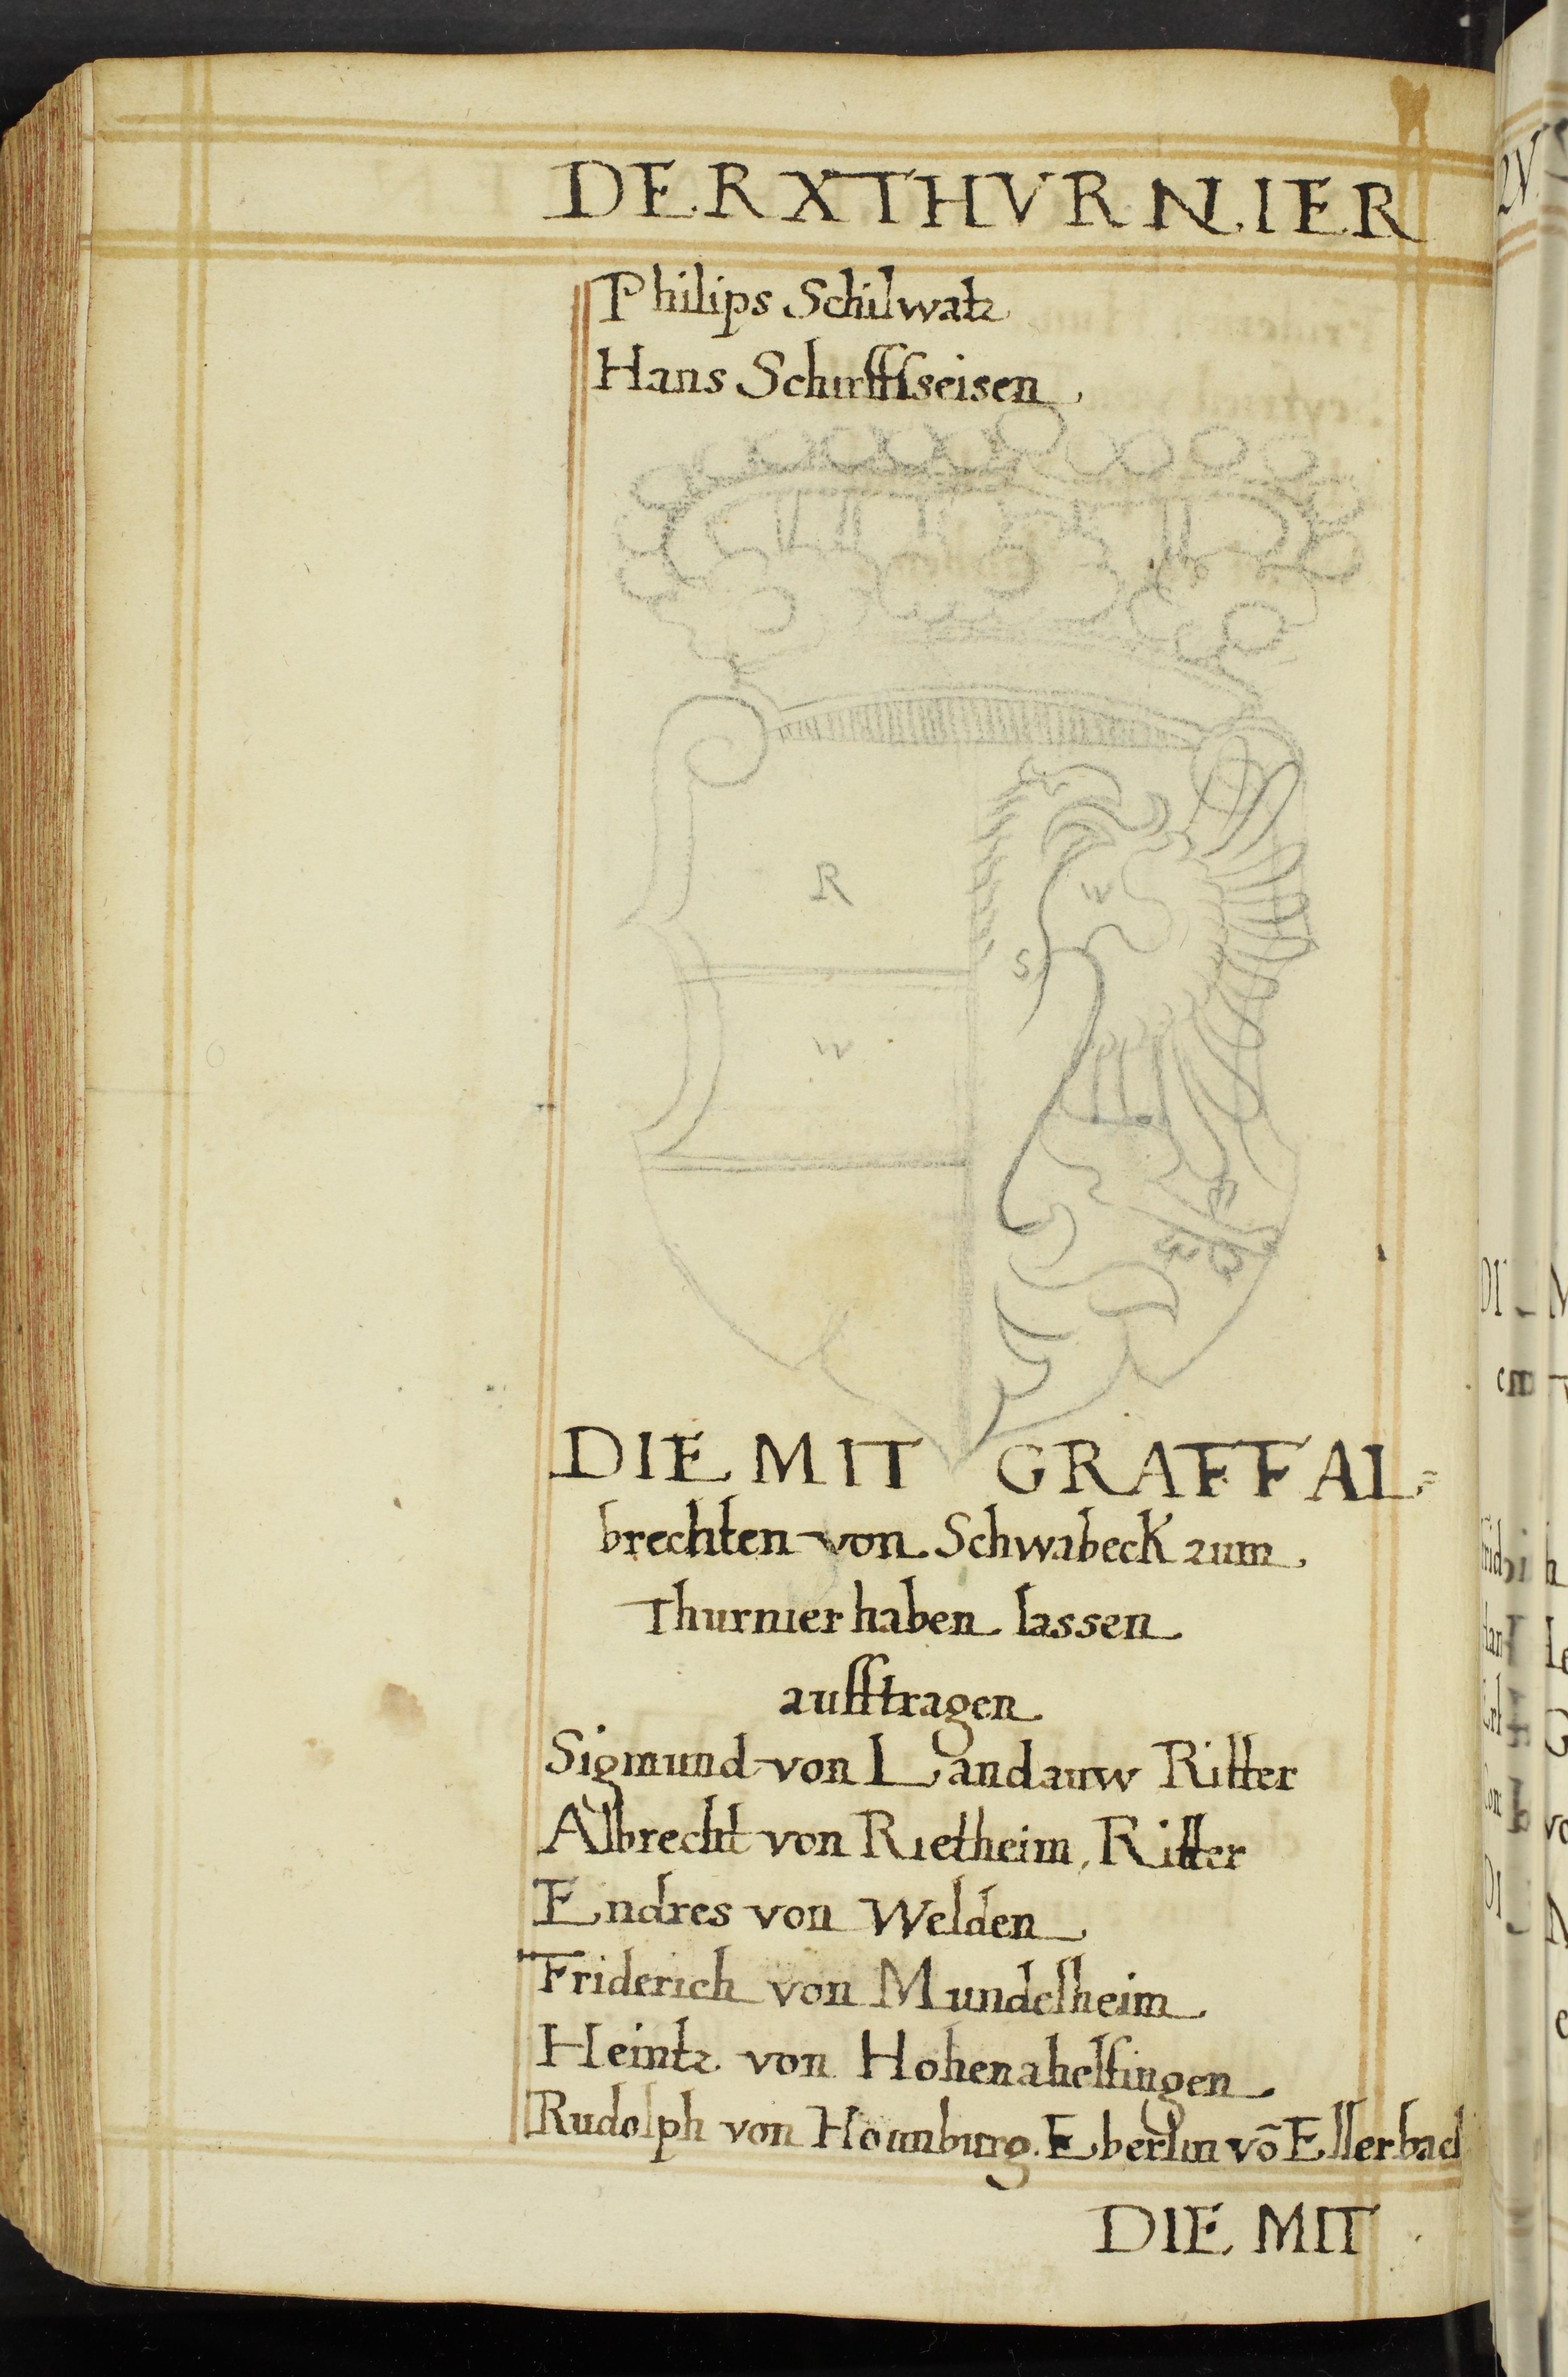 DER X THVRNIER
Philips Schilwatz
Hans Schirffsseisen
R
W
S
W
DIE MIT GRAFF AL=
brechten von Schwabeck zum
Thurnier haben lassen
aufftragen
Sigmund von Landauw Ritter
Albrecht von Rietheim, Ritter
Endres von Welden
Friderich von Mundelheim
Heintz von Hohenahelfingen
Rudolph von Hounburg. Eberlin võ Ellerbach
DIE MIT